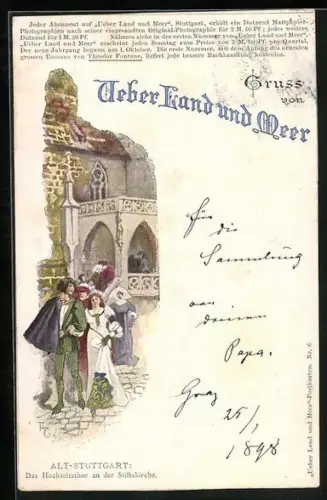 Jeder Abonnent auf „Ueber Land und Meer“, Stuttgart, erhält ein Dutzend Mattpapier-
Photographien nach seiner eingesandten Original-Photographie für 2 M. 50 Pf; jedes weitere
Dutzend für 1 M. 50 Pf. Näheres siehe in der ersten Nummer von „Ueber Land und Meer“.
„Ueber Land und Meer“ erscheint jeden Sonntag zum Preise von 3 M. 50 Pf. pro Quartal.
Der neue Jahrgang begann am 1. Oktober. Die erste Nummer, mit dem Anfang des neuesten
grossen Romans von Theodor Fontane, liefert jede bessere Buchhandlung kostenlos.
Gruss
von
Ueber Land und Meer
Für
die
Sammlung
von
deinem
Papa.
Graz
25/1
1898
ALT-STUTTGART:
Das Hochzeitsthor an der Stiftskirche.
„Ueber Land und Meer“-Postkarten. Nr. 6